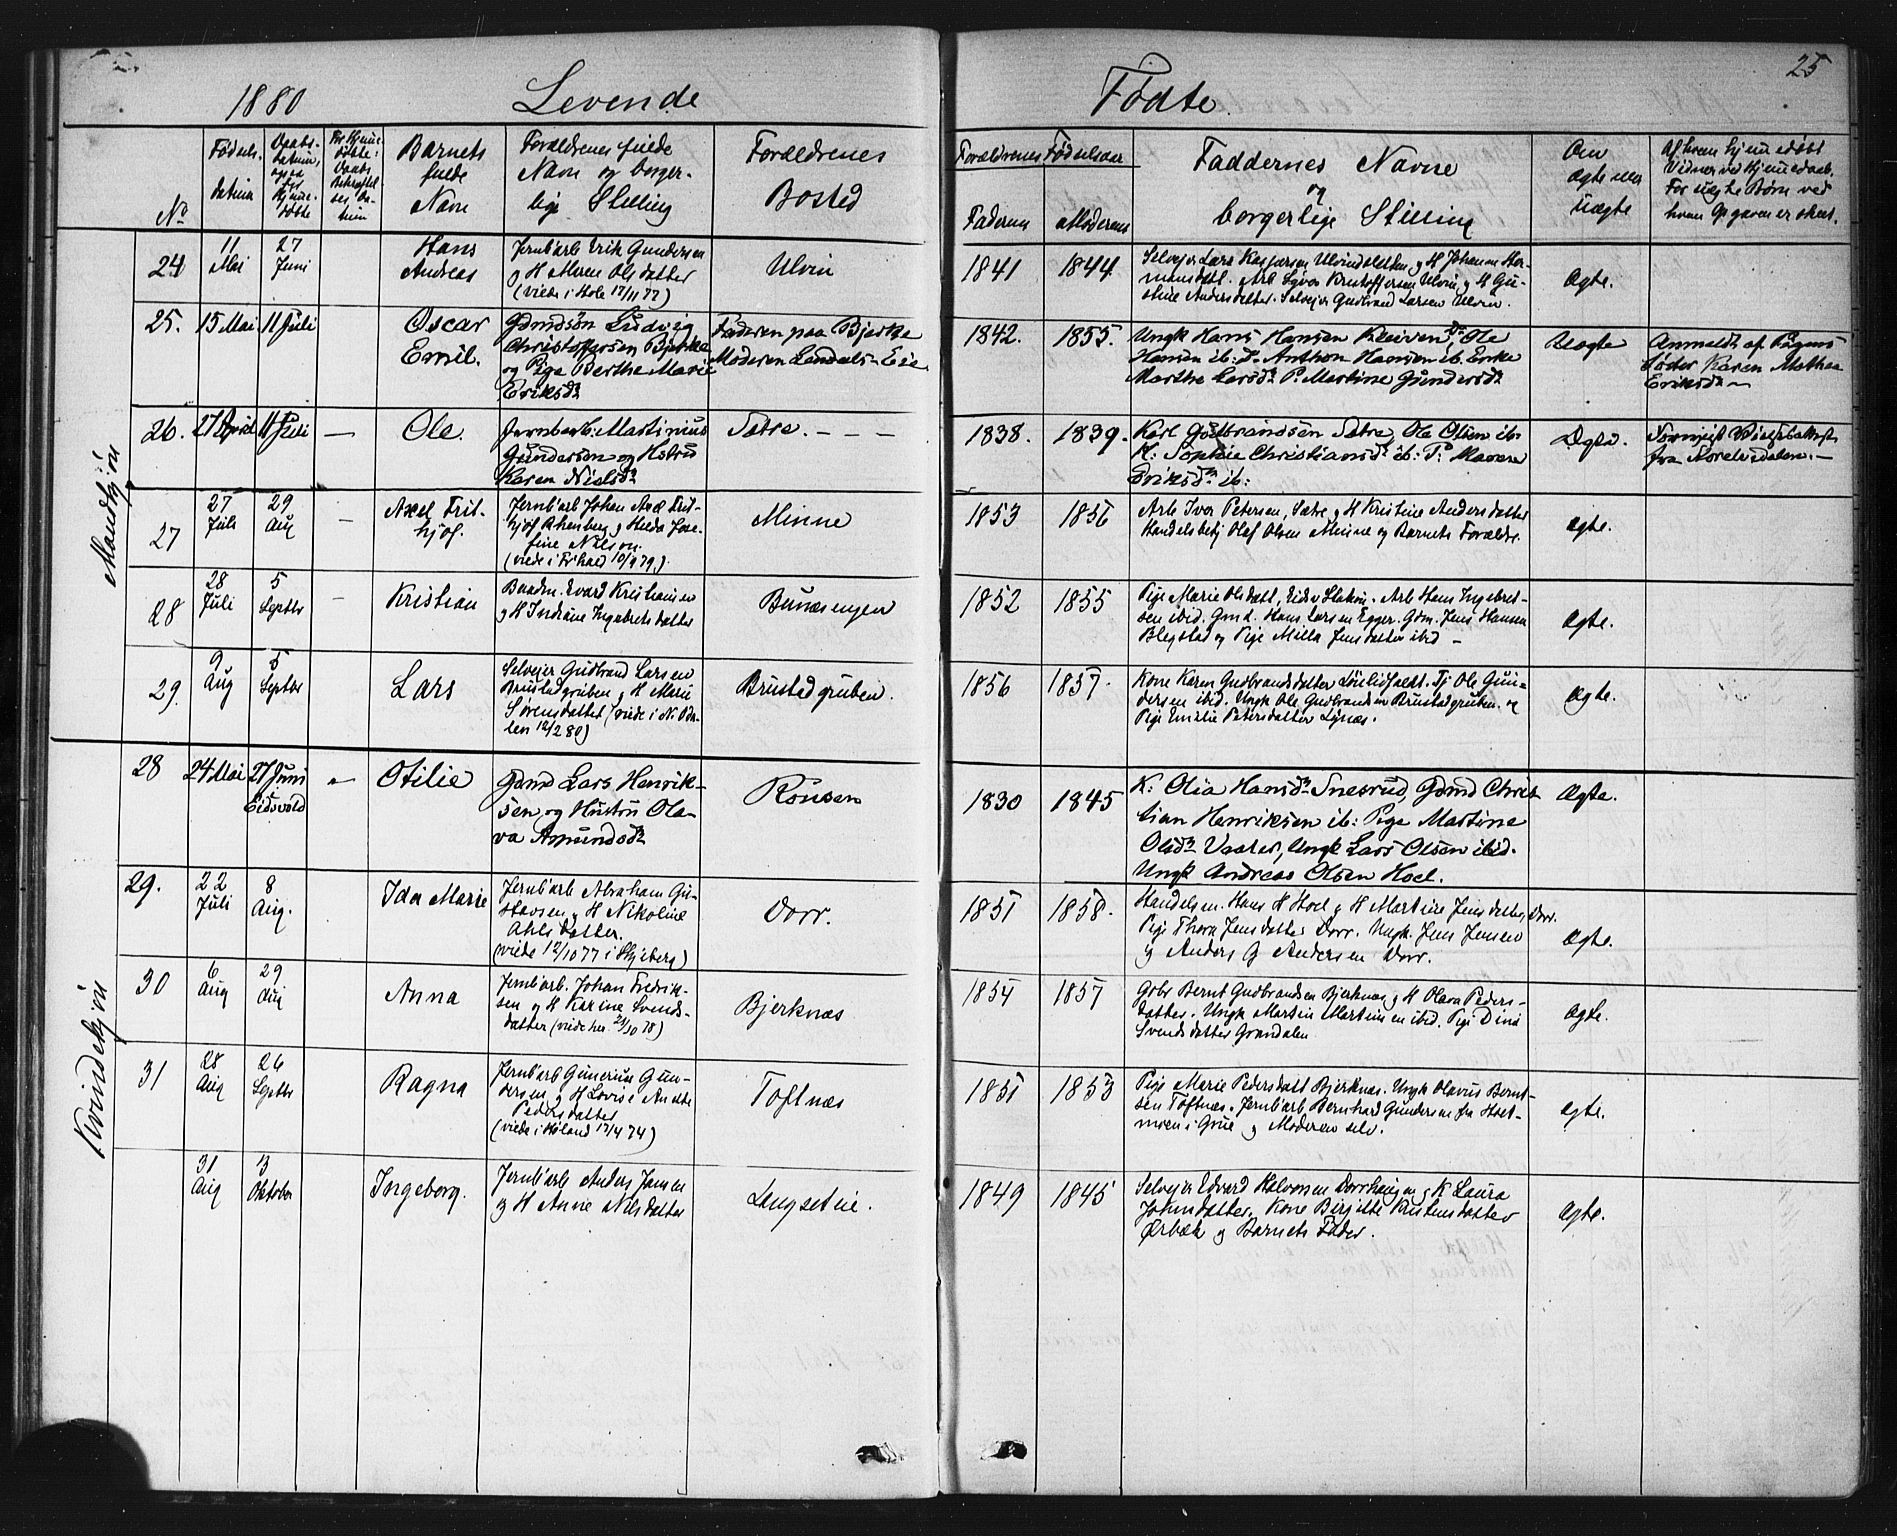 25
1880 Levende Födte.
No
Fødsels-
datum
Daabs-
datum,
ogsaa
for
Hjemme-
døbte
For Hjemme-
døbte:
Daabs
Bekræftel-
ses Da-
tum
Barnets
fulde
Navn
Forældrenes fulde
Navn og borger-
lige Stilling
Forældrenes
Bosted
Forældrenes Fødselsaar
Faderens Moderens
Faddernes Navne
og
borgerlige Stilling
Om
ægte eller
uægte
Af hvem hjemmedøbt
Vidner ved Hjemmedaab.
For uægte Børn ved
hvem Opgaven er skeet.
Mandkjön
24
11
Mai
27
Juni
Hans
Andreas
Jernb'arb Erik Gundersen
og H Maren Olsdatter
(viede i Hole 17/11 77)
Ulvin
1841 1844
Selvejer Lars Kaspersen Ulvinsletten og H Johanne Her-
mansdatt. Arb Syver Kristoffersen Ulvin og H Gu-
stine Andersdatter. Selvejer Gudbrand Larsen Ulvin.
Ægte.
25. 15 Mai 11 Juli
Oscar
Emil.
Gdmdsön Ludvig
Christoffersen Bjerke
og Pige Berthe Marie
Eriksdr
Faderen paa Bjerke
Moderen Sandals-Eie
1842. 1855.
Ungk Hans Hansen Kleiven, Do Ole
Hansen ib: Do Anthon Hansen ib. Enke
Marthe Larsdr P. Martine Gundersdr
Uægte
Anmeldt af Pigens
Søster Karen Mathea
Eriksdr
26. 27 April 11 Juli — Ole.
Jernbarb. Martinius
Gundersen og Hstru
Karen Nielsdr
Sætre. - - -
1838. 1839.
Karl Gudbrandsen Sætre, Ole Olsen ib:
K: Sophie Christiansdr ib: P: Maren
Eriksdr ib:
Ægte.
fra
27
27
Juli
29
Aug
—
Axel Frit-
hjof.
Jernb'arb Johan Axel Frit-
hjof og Hilda Jose-
fine Nilson.
(viede i 10/9 79)
Minne
1853 1856
Arb Ivar Petersen, Sætre og H Kristine Andersdatter
Handelsbetj Olaf Olsen Minne og Barnets Forældre.
Ægte.
28
28
Juli
5
Septbr
—
Kristian
Baadm. Evard Kristiansen
og H Indiane Ingebretsdatter
Bunæsengen
1852 1855
Pige Marie Olsdatt, Eidsv. Arb Hans Ingebret-
sen ibid. Gmd. Hans Larsen Egger. Gdm. Jens Hansen
Blegstad og Pige Milla Jensdatter ibid —
Ægte.
29.
9
Aug
5
Septbr
Lars
Selvejer Gudbrand Larsen
Brustadgruben og H Marie
Sörensdatter (viede i N. Oda-
len 12/2 80)
Brustadgruben.
1856 1857.
Kone Karen Gudbrandsdatter. Tj Ole Gun-
dersen ibid. Ungk Ole Gudbrandsen Brustadgruben. og
Pige Emilie Petersdatter Lynæs.
Ægte.
Kvindekjön
28 24 Mai
27 Juni
Eidsvold
—
Otilie
Gdmd Lars Henrik-
sen og Hustru Ola-
va Amundsdr
Rönsen
1830 1845
K: Olia Hansdr Snesrud, Gdmd Chris-
tian Henriksen ib: Pige Martine
Olsdr Vaarer, Ungk Lars Olsen ibid.
Ungk Andreas Olsen Hoel.
Ægte.
29.
22
Juli
8
Aug.
Ida Marie
Jernb'arb Abraham Gu-
stavsen og H Nikoline
Ahlsdatter.
(viede 12/10 77 i Skjeberg)
Dorr.
1851 1858.
Handelsm. Hans H Hoel og H Martine Jensdatter, Dorr.
Pige Thora Jensdatter Dorr. Ungk. Jens Jensen
og Anders G Andersen Dorr.
Ægte.
30
6
Aug
29
Aug
Anna
Jernb'arb. Johan Fredrik-
sen og H Karine Svends-
datter (viede her. 21/10 78)
Bjerknæs
1854 1857
Gbr Bernt Gudbrandsen Bjerknæs og H Olava Peders-
datter. Ungk Martin Martinsen ibid. Pige Dina
Svendsdatter Grandalen
Ægte.
31
28
Aug
26
Septbr
Ragna
Jernb'arb Gunerius Gun-
dersen og H Lovise Anette
Pedersdatter
(viede i Höland 17/4 74)
Toftnæs
1851 1853
Pige Marie Pedersdatt Bjerknæs. Ungk Olavus Bernt-
sen Toftnæs. Jernb'arb Bernhard Gundersen fra Hoel-
moen i Grue og Moderen selv.
Ægte.
31
Aug
3
Oktober
Ingeborg.
Jernb'arb Anders Jansen
og H Anne Nilsdatter
Langseteie.
1849 1845
Selvejer Edvard Halvorsen Dorrhaugen og K Laura
Johnsdatter, Kone Birgitte Kristensdatter
Ørbæk og Barnets Fader.
Ægte.